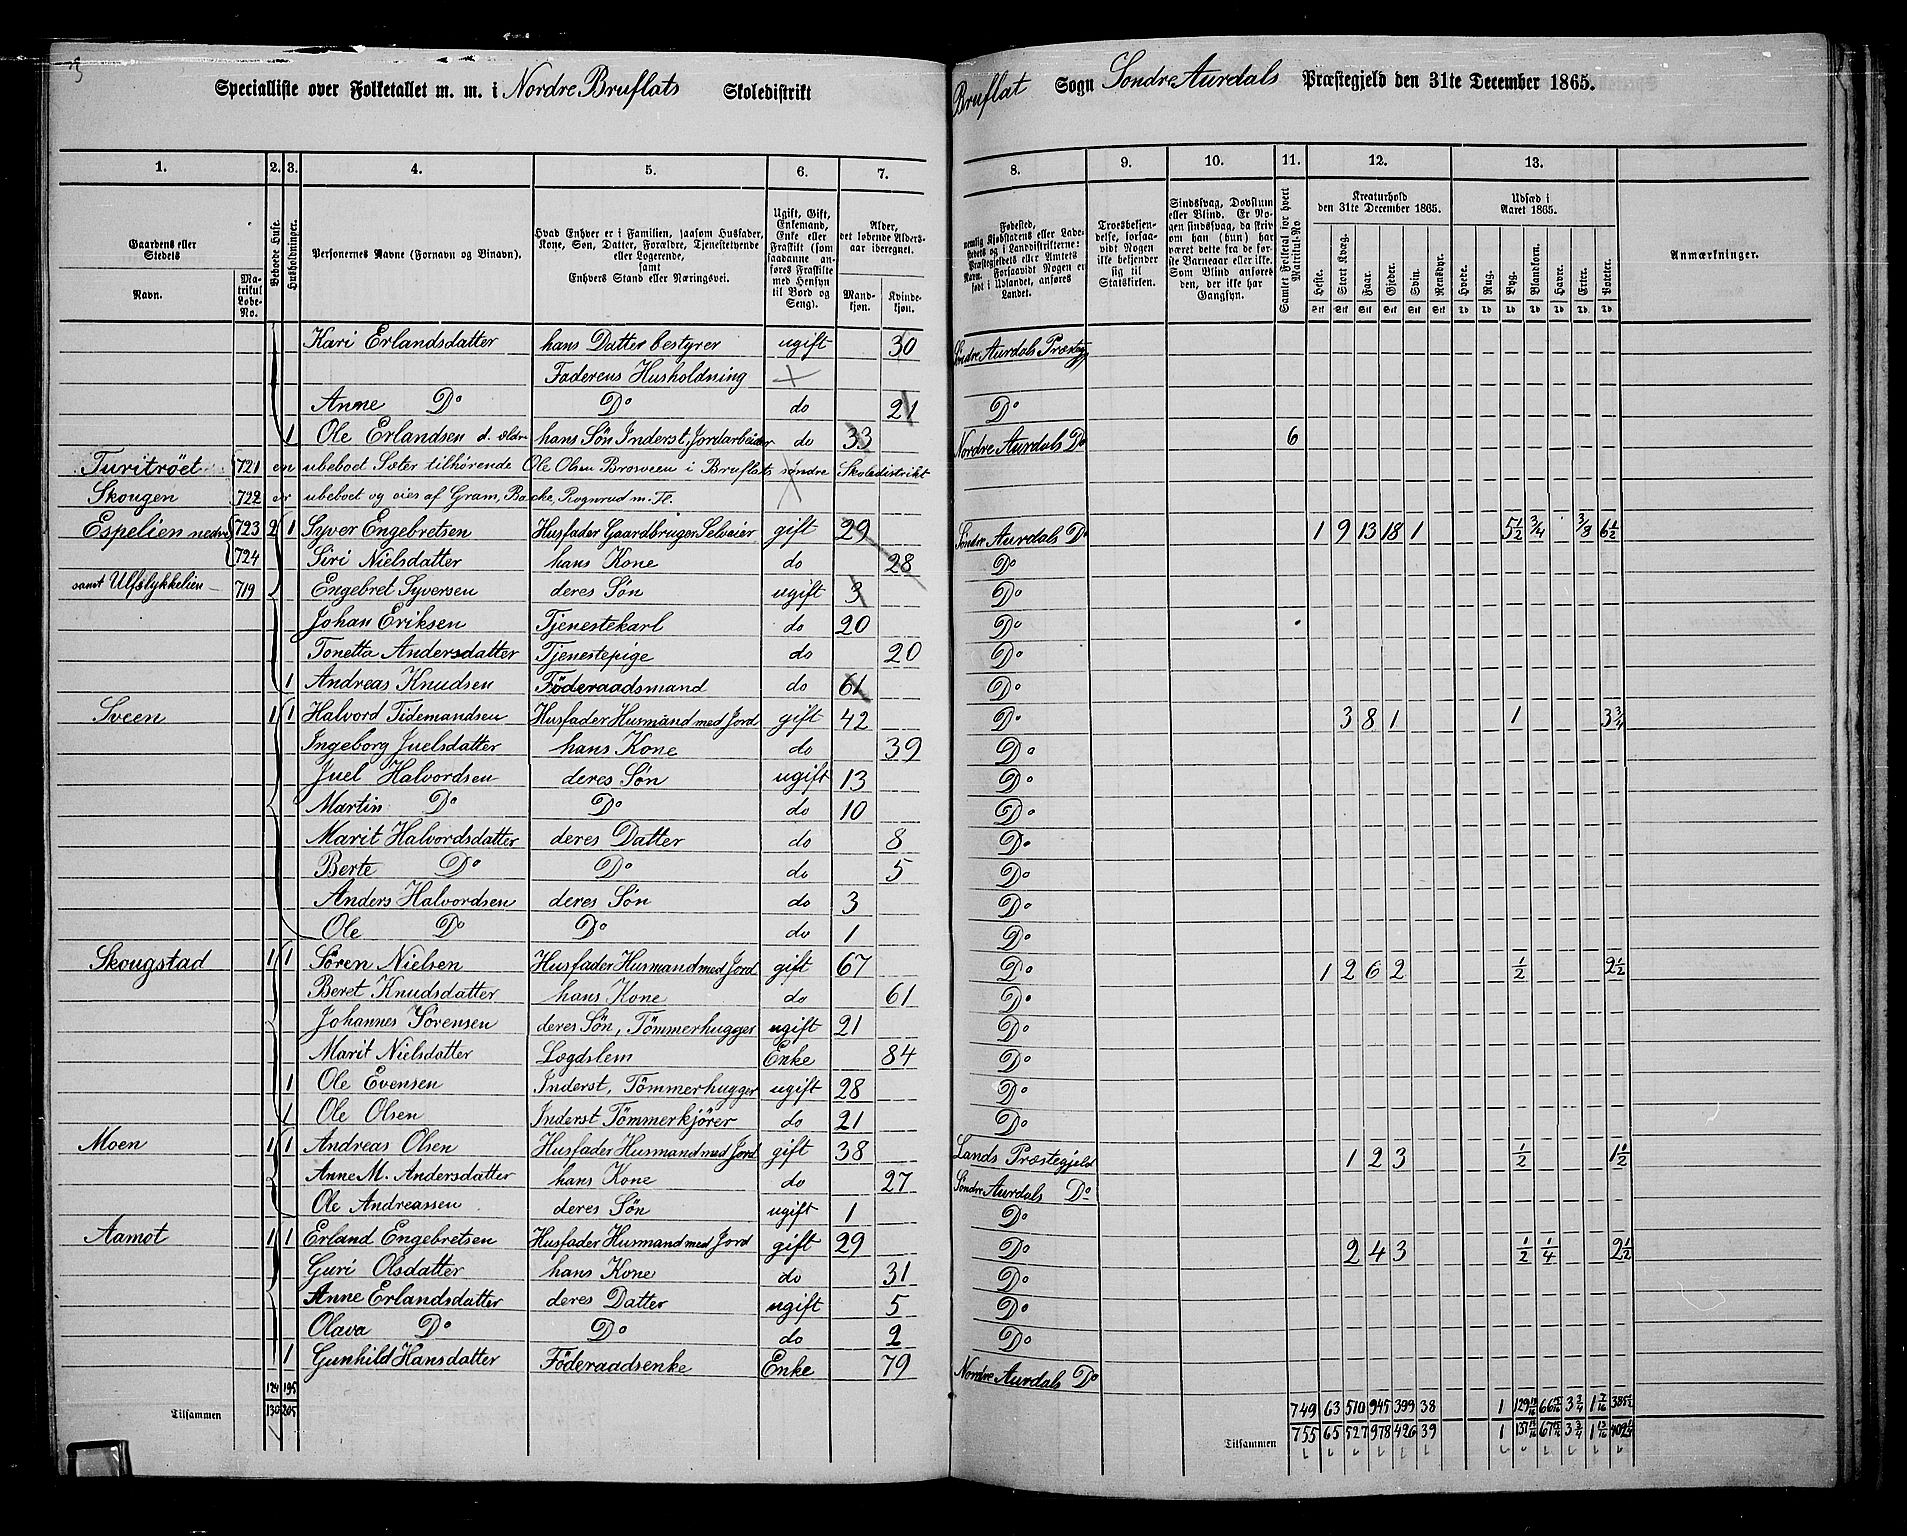 Specialliste over Folketallet m. m. i Nordre Bruflats Skoledistrikt
Bruflat Sogn Søndre Aurdals Præstegjeld den 31te December 1865.
1. 2. 3. 4. 5. 6. 7. 8. 9. 10. 11. 12. 13.
Gaardens eller Stedets
Navn.
Matrikul Løbe-No.
Beboede Huse.
Husholdninger.
Personernes Navne (Fornavn og Binavn).
Hvad Enhver er i Familien, saasom Husfader, Kone, Søn, Datter, Forældre, Tjenestetyende eller Logerende,
samt
Enhvers Stand eller Næringsvei.
Ugift, Gift, Enkemand, Enke eller Fraskilt (som saadanne anføres Fraskilte med Hensyn til Bord og Seng).
Alder, det løbende Aldersaar iberegnet.
Mandkjøn.
Kvindekjøn.
Fødested, nemlig Kjøbstadens eller Ladestedets og i Landdistrikterne: Præstegjeldets eller Amtets Navn. Forsaavidt Nogen er født i Udlandet, anføres Landet.
Troesbekjendelse, forsaavidt Nogen ikke bekjender sig til Statskirken.
Sindssvag, Døvstum eller Blind. Er Nogen sindssvag, da skriv om han (hun) har været dette fra de første Barneaar eller ikke. Som Blind anføres den, der ikke har Gangsyn.
Samlet Folketal for hvert Matrikul-No
Kreaturhold den 31te December 1865.
Heste. Stort Kvæg. Faar. Gjeder. Svin. Rensdyr.
Udsæd i Aaret 1865.
Hvede. Rug. Byg. Blandkorn. Havre. Erter. Poteter.
Anmærkninger.
Stk Stk Stk Stk Stk Stk Td Td Td Td Td Td Td
Kari Erlandsdatter hans Datter bestyrer ugift 30 Søndre Aurdals Præstegj
Faderens Husholdning
Anne Do Do do 21 Do
1 Ole Erlandsen d. ældre hans Søn Inderst, Jordarbeider do 33 Nordre Aurdals Do 6
Turitröet 721 en ubeboet Sæter tilhørende Ole Olsen Brosveen i Bruflats søndre Skoledistrikt
Skougen 722 er ubeboet og eies af Gram, Bakke, Rognrud m. Fl.
Espelien nedre 723 2 1 Syver Engebretsen Husfader Gaardbruger Selveier gift 29 Søndre Aurdals Do 1 9 13 18 1 5 1/2 3/4 3/3 6 1/2
724 Siri Nielsdatter hans Kone do 28 Do
samt Ulfslykkelien 719 Engebret Syversen deres Søn ugift 3 Do
Johan Eriksen Tjenestekarl do 20 Do
Tonetta Andersdatter Tjenestepige do 20 Do
1 Andreas Knudsen Föderaadsmand do 61 Do
Sveen 1 1 Halvord Tidemandsen Husfader Husmand med Jord gift 42 Do 3 8 1 1 3 3/4
Ingeborg Juelsdatter hans Kone do 39 Do
Juel Halvordsen deres Søn ugift 13 Do
Martin Do Do do 10 Do
Marit Halvordsdatter deres Datter do 8 Do
Berte Do Do do 5 Do
Anders Halvordsen deres Søn do 3 Do
Ole Do Do do 1 Do
Skougstad 1 1 Sören Nielsen Husfader Husmand med Jord gift 67 Do 1 2 6 2 1/2 2 1/2
Beret Knudsdatter hans Kone do 61 Do
Johannes Sörensen deres Søn, Tömmerhugger ugift 21 Do
Marit Nielsdatter Lægdslem Enke 84 Do
1 Ole Evensen Inderst, Tömmerhugger ugift 28 Do
1 Ole Olsen Inderst Tömmerkjörer do 21 Do
Moen 1 1 Andreas Olsen Husfader Husmand med Jord gift 38 Lands Præstegjeld 1 2 3 1/2 1 1/2
Anne M. Andersdatter hans Kone do 27 Søndre Aurdals Do
Ole Andreassen deres Søn ugift 1 Do
Aamot 1 1 Erland Engebretsen Husfader Husmand med Jord gift 29 Do 2 4 3 1/2 1/4 2 1/2
Guri Olsdatter hans Kone do 31 Do
Anne Erlandsdatter deres Datter ugift 5 Do
Olava Do Do do 2 Do
1 Gunhild Hansdatter Föderaadsenke Enke 79 Nordre Aurdals Do
124 195 749 63 510 945 399 38 1
Tilsammen 130 205 Tilsammen 755 65 527 978 426 39 1